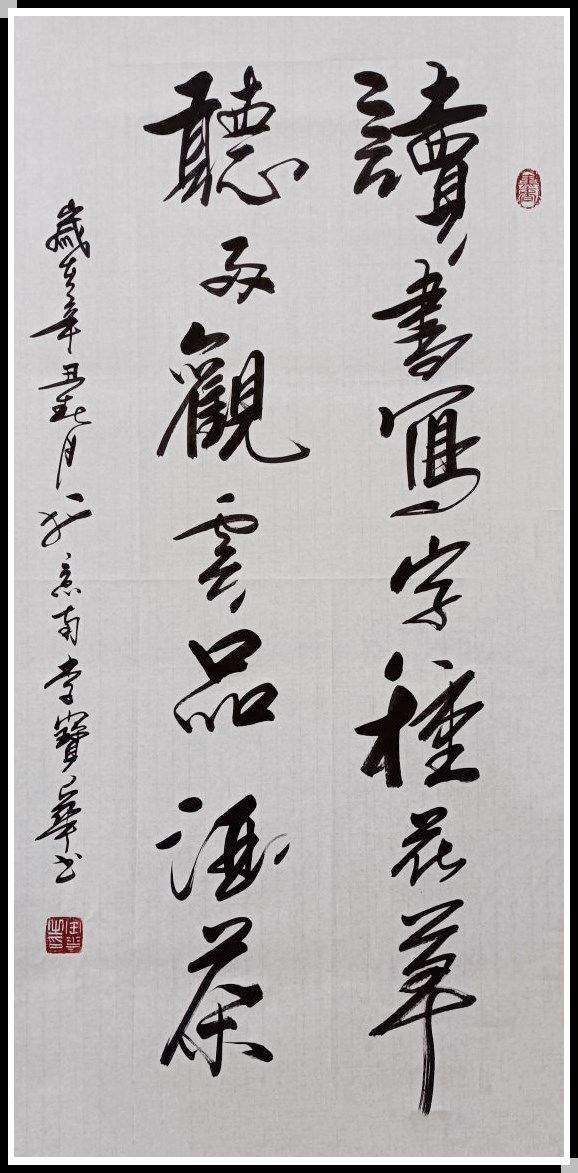 讀書寫字種花草
聽雨觀雲品酒茶
歲在辛丑春月於京南李寶華書